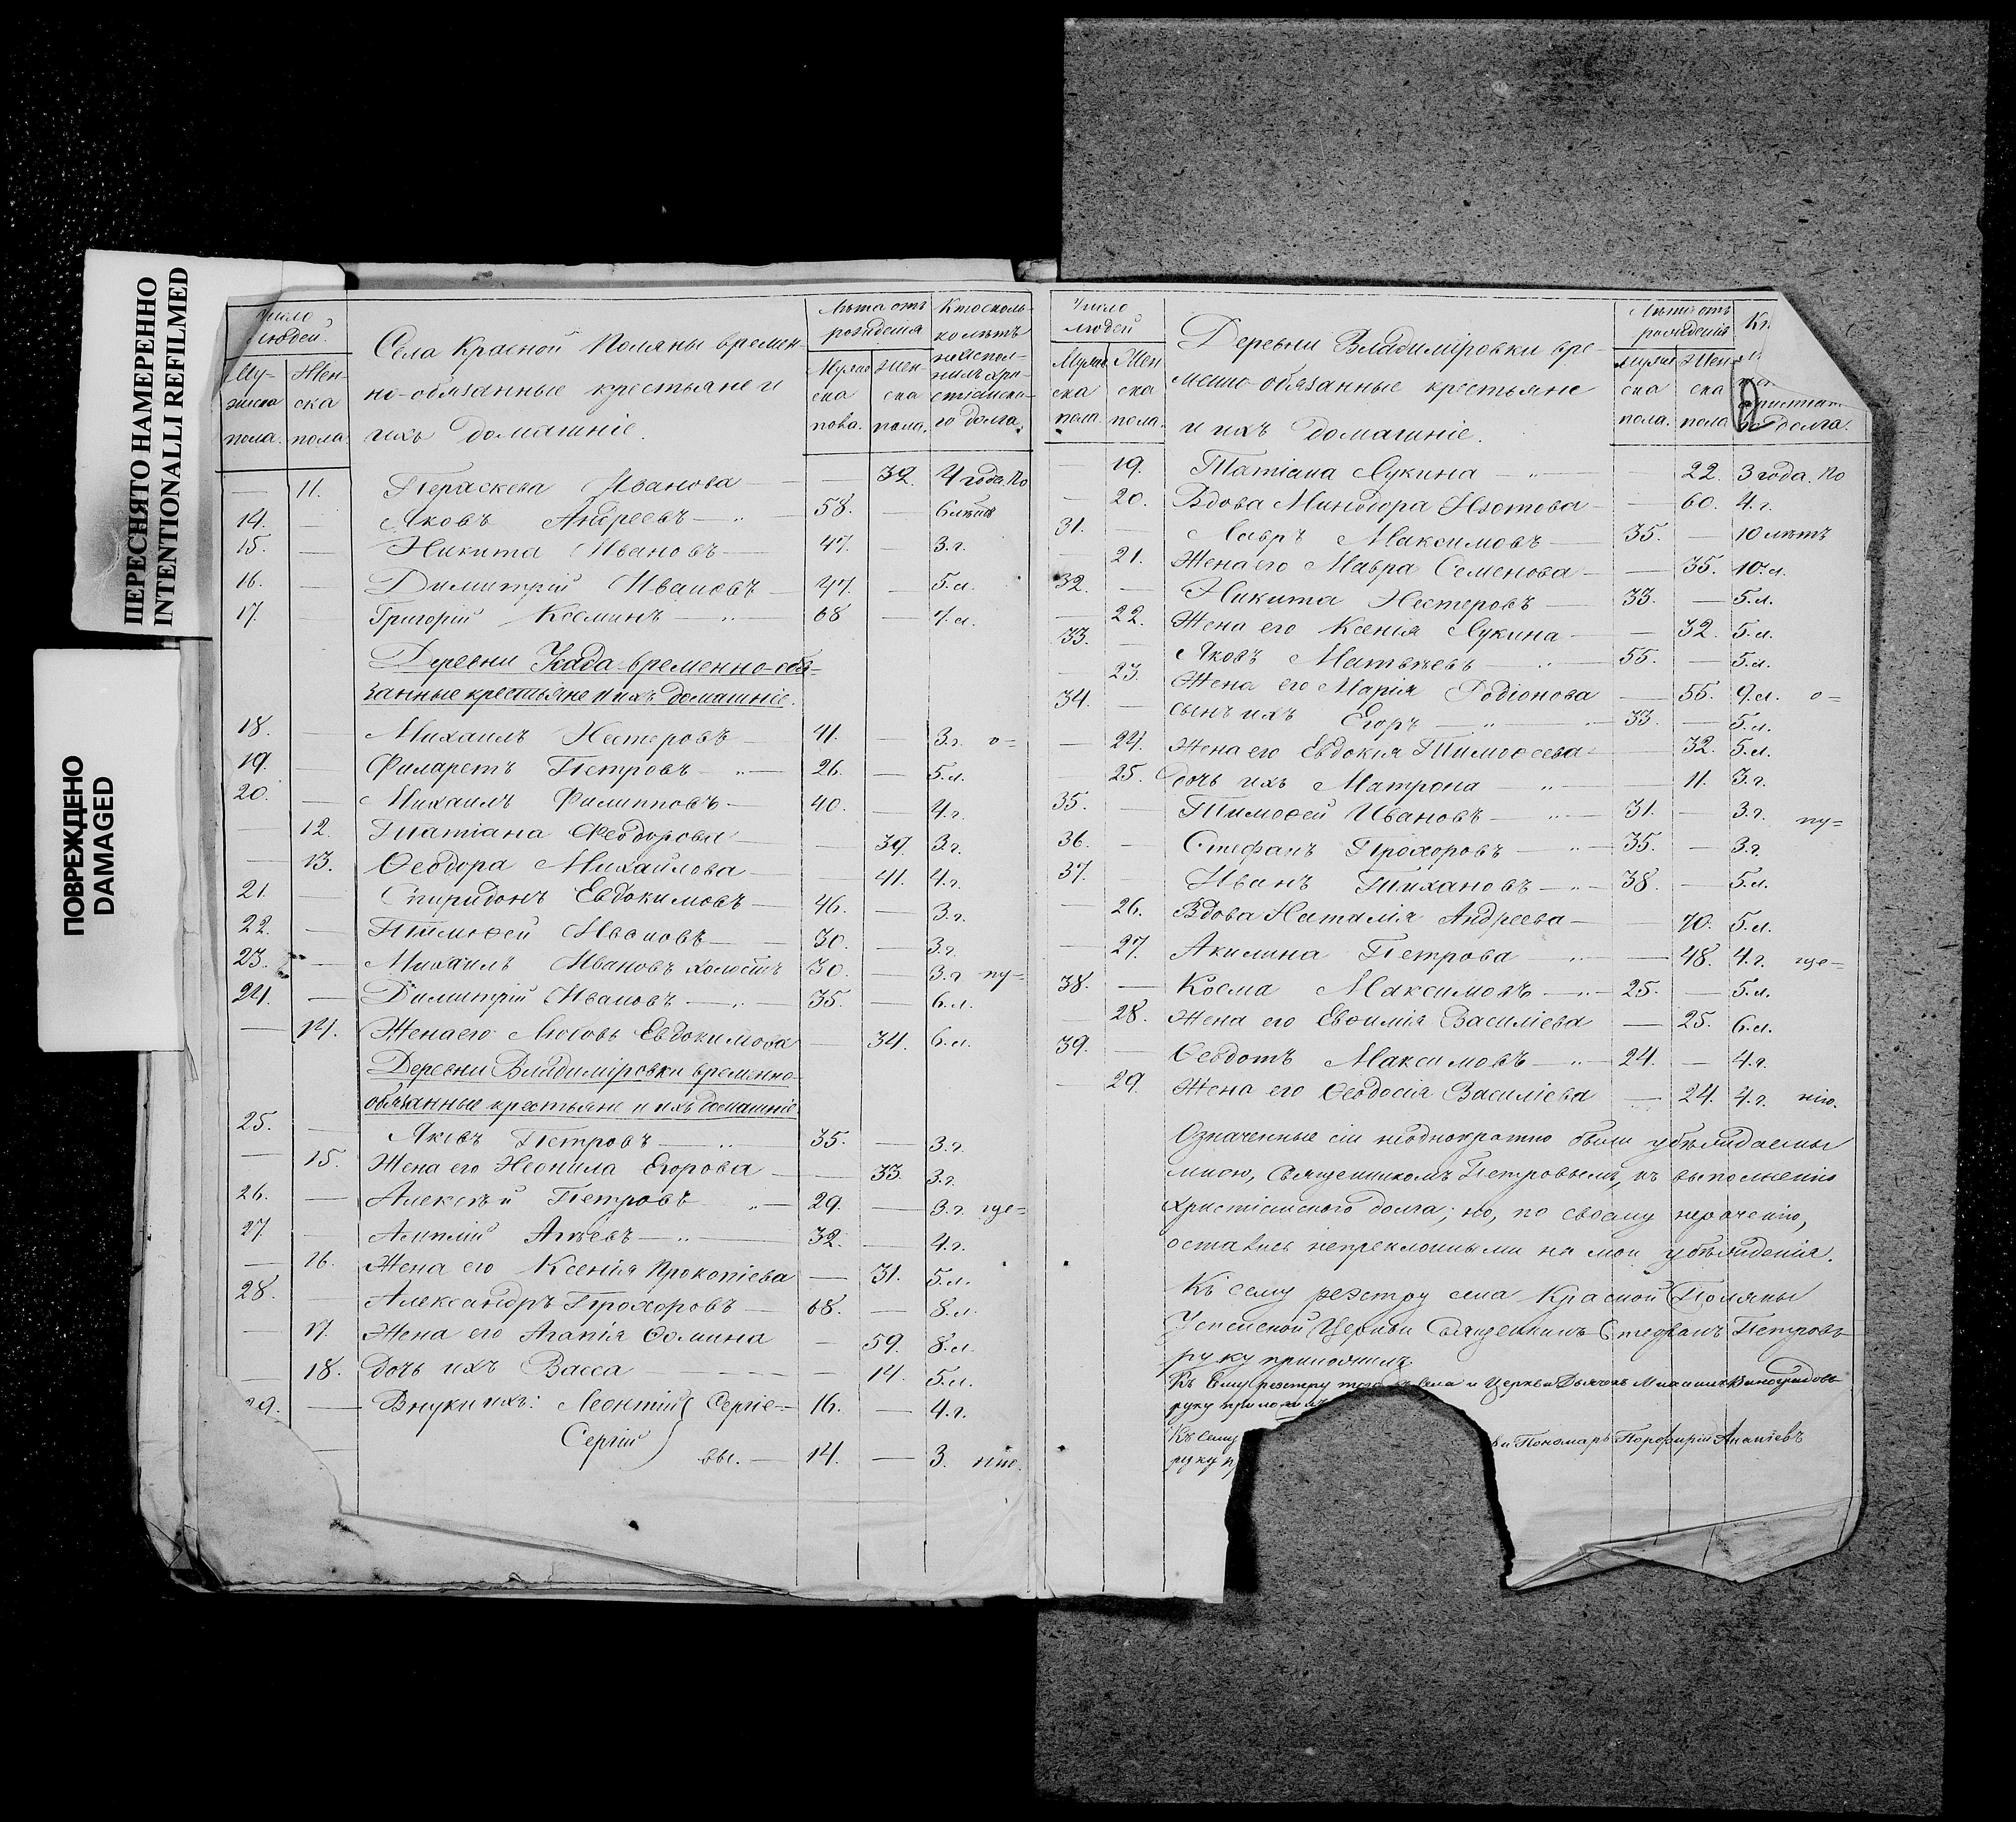 ПЕРЕСНЯТО НАМЕРЕННО
INTENTIONALLI REFILMED
ПОВРЕЖДЕНО
DAMAGED
Число людей.
Му-жеска пола.
Жен-ска пола.
Села Красной Поляны времен-
но-обязанные крестьяне и
ихъ домашніе.
Лѣта отъ рожденія
Мужеска пола.
Женска пола.
Кто сколько лѣтъ неисполнилъ христіанскаго долга.
— 11. Параскева Иванова — 32. 4 года. По
14. — Яковъ Андреевъ 58. — 6 лѣтъ
15. — Никита Ивановъ 47. — 3.г.
16. — Димитрій Ивановъ 47. — 5.л.
17. — Григорій Косминъ 68 — 7.л.
Деревни временно-обя-
занные крестьяне и ихъ домашніе.
18. — Михаилъ Нестеровъ 41. — 3.г. о=
19. — Филаретъ Петровъ 26. — 5.л.
20. — Михаилъ Филипповъ 40. — 4.г.
— 12. Татіана Ѳеодорова — 39. 3.г.
— 13. Ѳеодора Михайлова — 41. 4.г.
21. — Спиридонъ Евдокимовъ 46. — 3.г.
22. — Тимоѳей Ивановъ 30. — 3.г.
23. — Михаилъ Ивановъ холостъ 30. — 3.г. пу=
24. — Димитрій Ивановъ 35. — 6.л.
— 14. Жена его Любовь Евдокимова — 34. 6.л.
Деревни Владиміровки временно-
обязанные крестьяне и ихъ домашніе.
25. — Яковъ Петровъ 35. — 3.г.
— 15. Жена его Неонила Егорова — 33. 3.г.
26. — Алексѣй Петровъ 29. — 3.г. ще=
27. — Амплій Агѣевъ 32. — 4.г.
— 16. Жена его Ксенія Прокопіева — 31. 5.л.
28. — Александръ Прохоровъ 68. — 8.л.
— 17. Жена его Агапія Ѳомина — 59. 8.л.
— 18. Дочь ихъ Васса — 14. 5.л.
29. — Внуки ихъ: Леонтій Сергіе- 16. — 4.г.
— Сергій вы. 14. — 3. нію.
Число людей
Мужеска пола.
Женска пола.
Деревни Владиміровки вре-
менно-обязанные крестьяне
и ихъ домашніе.
Лѣта отъ рожденія
Мужеска пола.
Женска пола
долга.
— 19. Татіана Лукина — 22. 3 года. По
— 20. Вдова Минодора Изотова — 60. 4.г.
31. — Лавръ Максимовъ 35. — 10 лѣтъ
— 21. Жена его Мавра Семенова — 35. 10.л.
32. — Никита Нестеровъ 33. — 5.л.
— 22. Жена его Ксенія Лукина — 32. 5.л.
33. — Яковъ Матвѣевъ 55. — 5.л.
— 23. Жена его Марія Родіонова — 55. 9.л. о=
34. — Сынъ ихъ Егоръ 33. — 5.л.
— 24. Жена его Евдокія Тимоѳеева — 32. 5.л.
— 25. Дочь ихъ Матрона — 11. 3.г.
35. — Тимоѳей Ивановъ 31. — 3.г. пу=
36. — Стефанъ Прохоровъ 35. — 3.г.
37. — Иванъ Тихановъ 38. — 5.л.
— 26. Вдова Наталія Андреева — 70. 5.л.
— 27. Акилина Петрова — 48. 4.г. ще=
38. — Косма Максимовъ 25. — 5.л.
— 28. Жена его Евѳимія Василіева — 25. 6.л.
39. — Ѳеодотъ Максимовъ 24. — 4.г.
— 29. Жена его Ѳеодосія Василіева — 24. 4.г. нію.
Означенные сіи неоднократно были убѣждаемы
мною, Священникомъ Петровымъ, къ выполненію
христіанского долга; но, по своему нерачению,
остались непреклонными на мои убѣжденія.
Къ сему реэстру села Красной Поляны
Успенской Церкви Священникъ Стефанъ Петровъ
руку приложилъ.
Къ сему реэстру того села и Церкви Дьячекъ Виноградовъ
руку приложилъ
Къ сему Пономарь Порфирій Ананіевъ
руку п